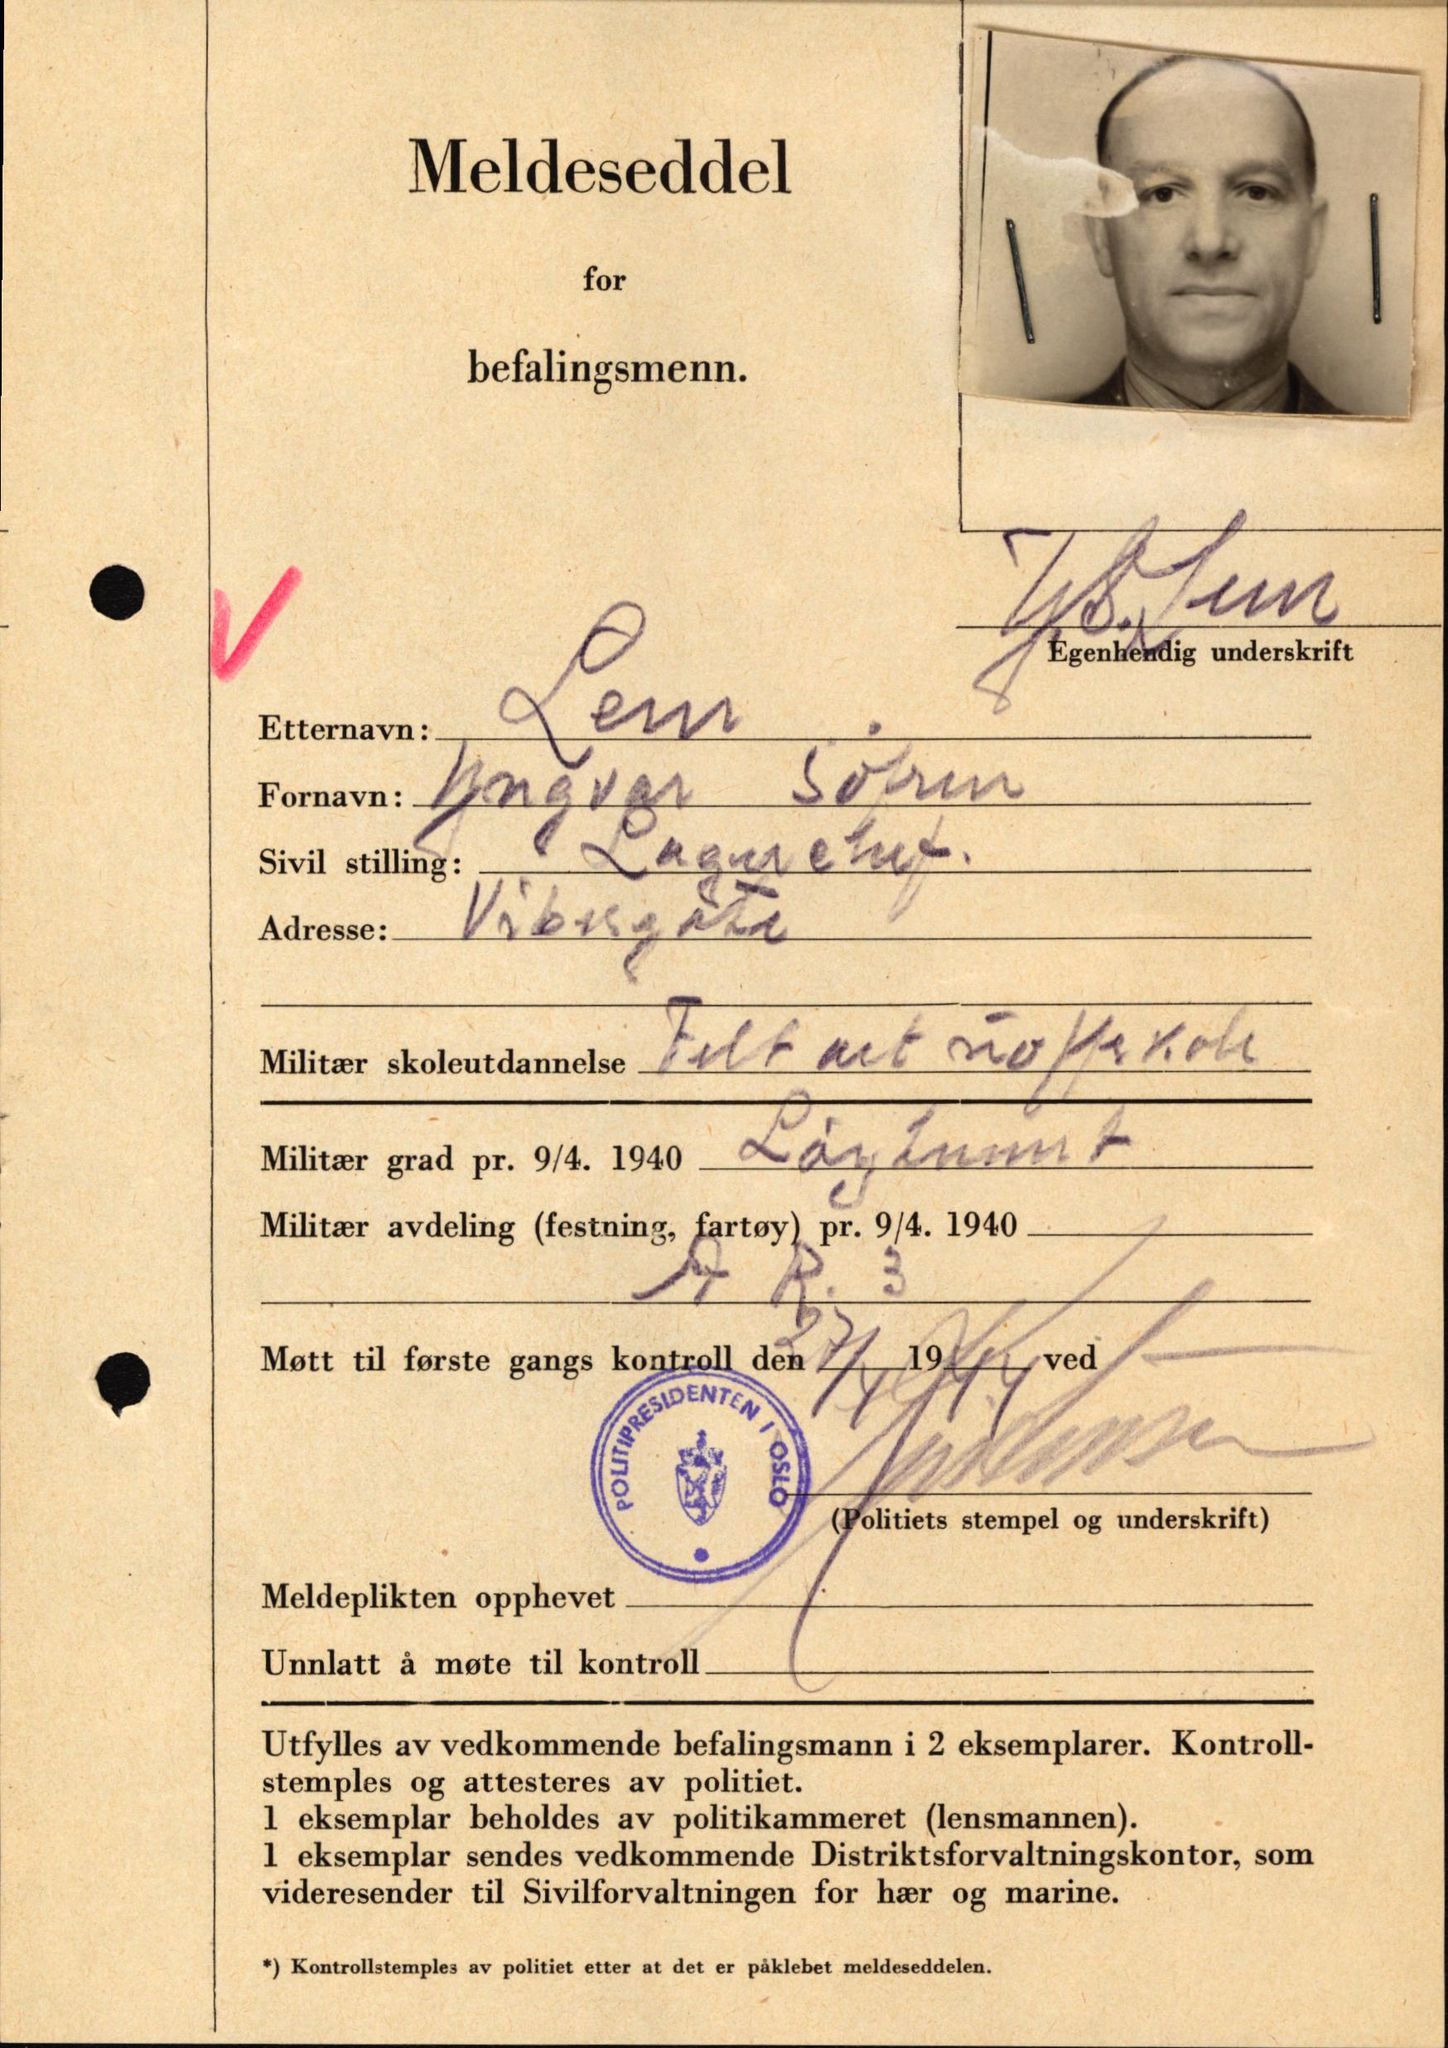 Meldeseddel
for
befalingsmenn.
Y. S. Lem
Egenhendig underskrift
Etternavn: Lem
Fornavn: Yngvar Søfren
Sivil stilling: Lagerchef.
Adresse: Vibesgate
Militær skoleutdannelse Felt art uoffskole
Militær grad pr. 9/4. 1940 Løytnant
Militær avdeling (festning, fartøy) pr. 9/4. 1940
A R. 3
Møtt til første gangs kontroll den 27/ 19 ved
POLITIPRESIDENTEN I OSLO
(Politiets stempel og underskrift)
Meldeplikten opphevet
Unnlatt å møte til kontroll
Utfylles av vedkommende befalingsmann i 2 eksemplarer. Kontroll-
stemples og attesteres av politiet.
1 eksemplar beholdes av politikammeret (lensmannen).
1 eksemplar sendes vedkommende Distriktsforvaltningskontor, som
videresender til Sivilforvaltningen for hær og marine.
*) Kontrollstemples av politiet etter at det er påklebet meldeseddelen.